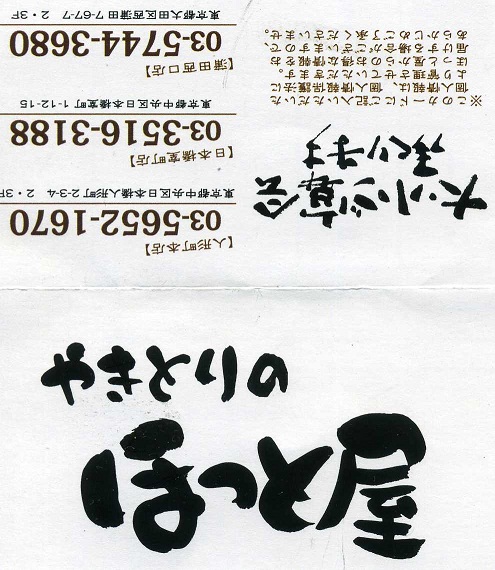 やきとりの
ほっと屋
大小ご宴会
承ります
※このカードにご記入いただいた
個人情報は、個人情報保護法に
より管理させていただきます。
ほっと屋からのお得な情報をお
届けする場合がございますので、
あらかじめご了承くださいませ。
【人形町本店】
03-5652-1670
東京都中央区日本橋人形町2-3-4 2・3F
【日本橋室町店】
03-3516-3188
東京都中央区日本橋室町1-12-15
【蒲田西口店】
03-5744-3680
東京都大田区西蒲田7-67-7 2・3F